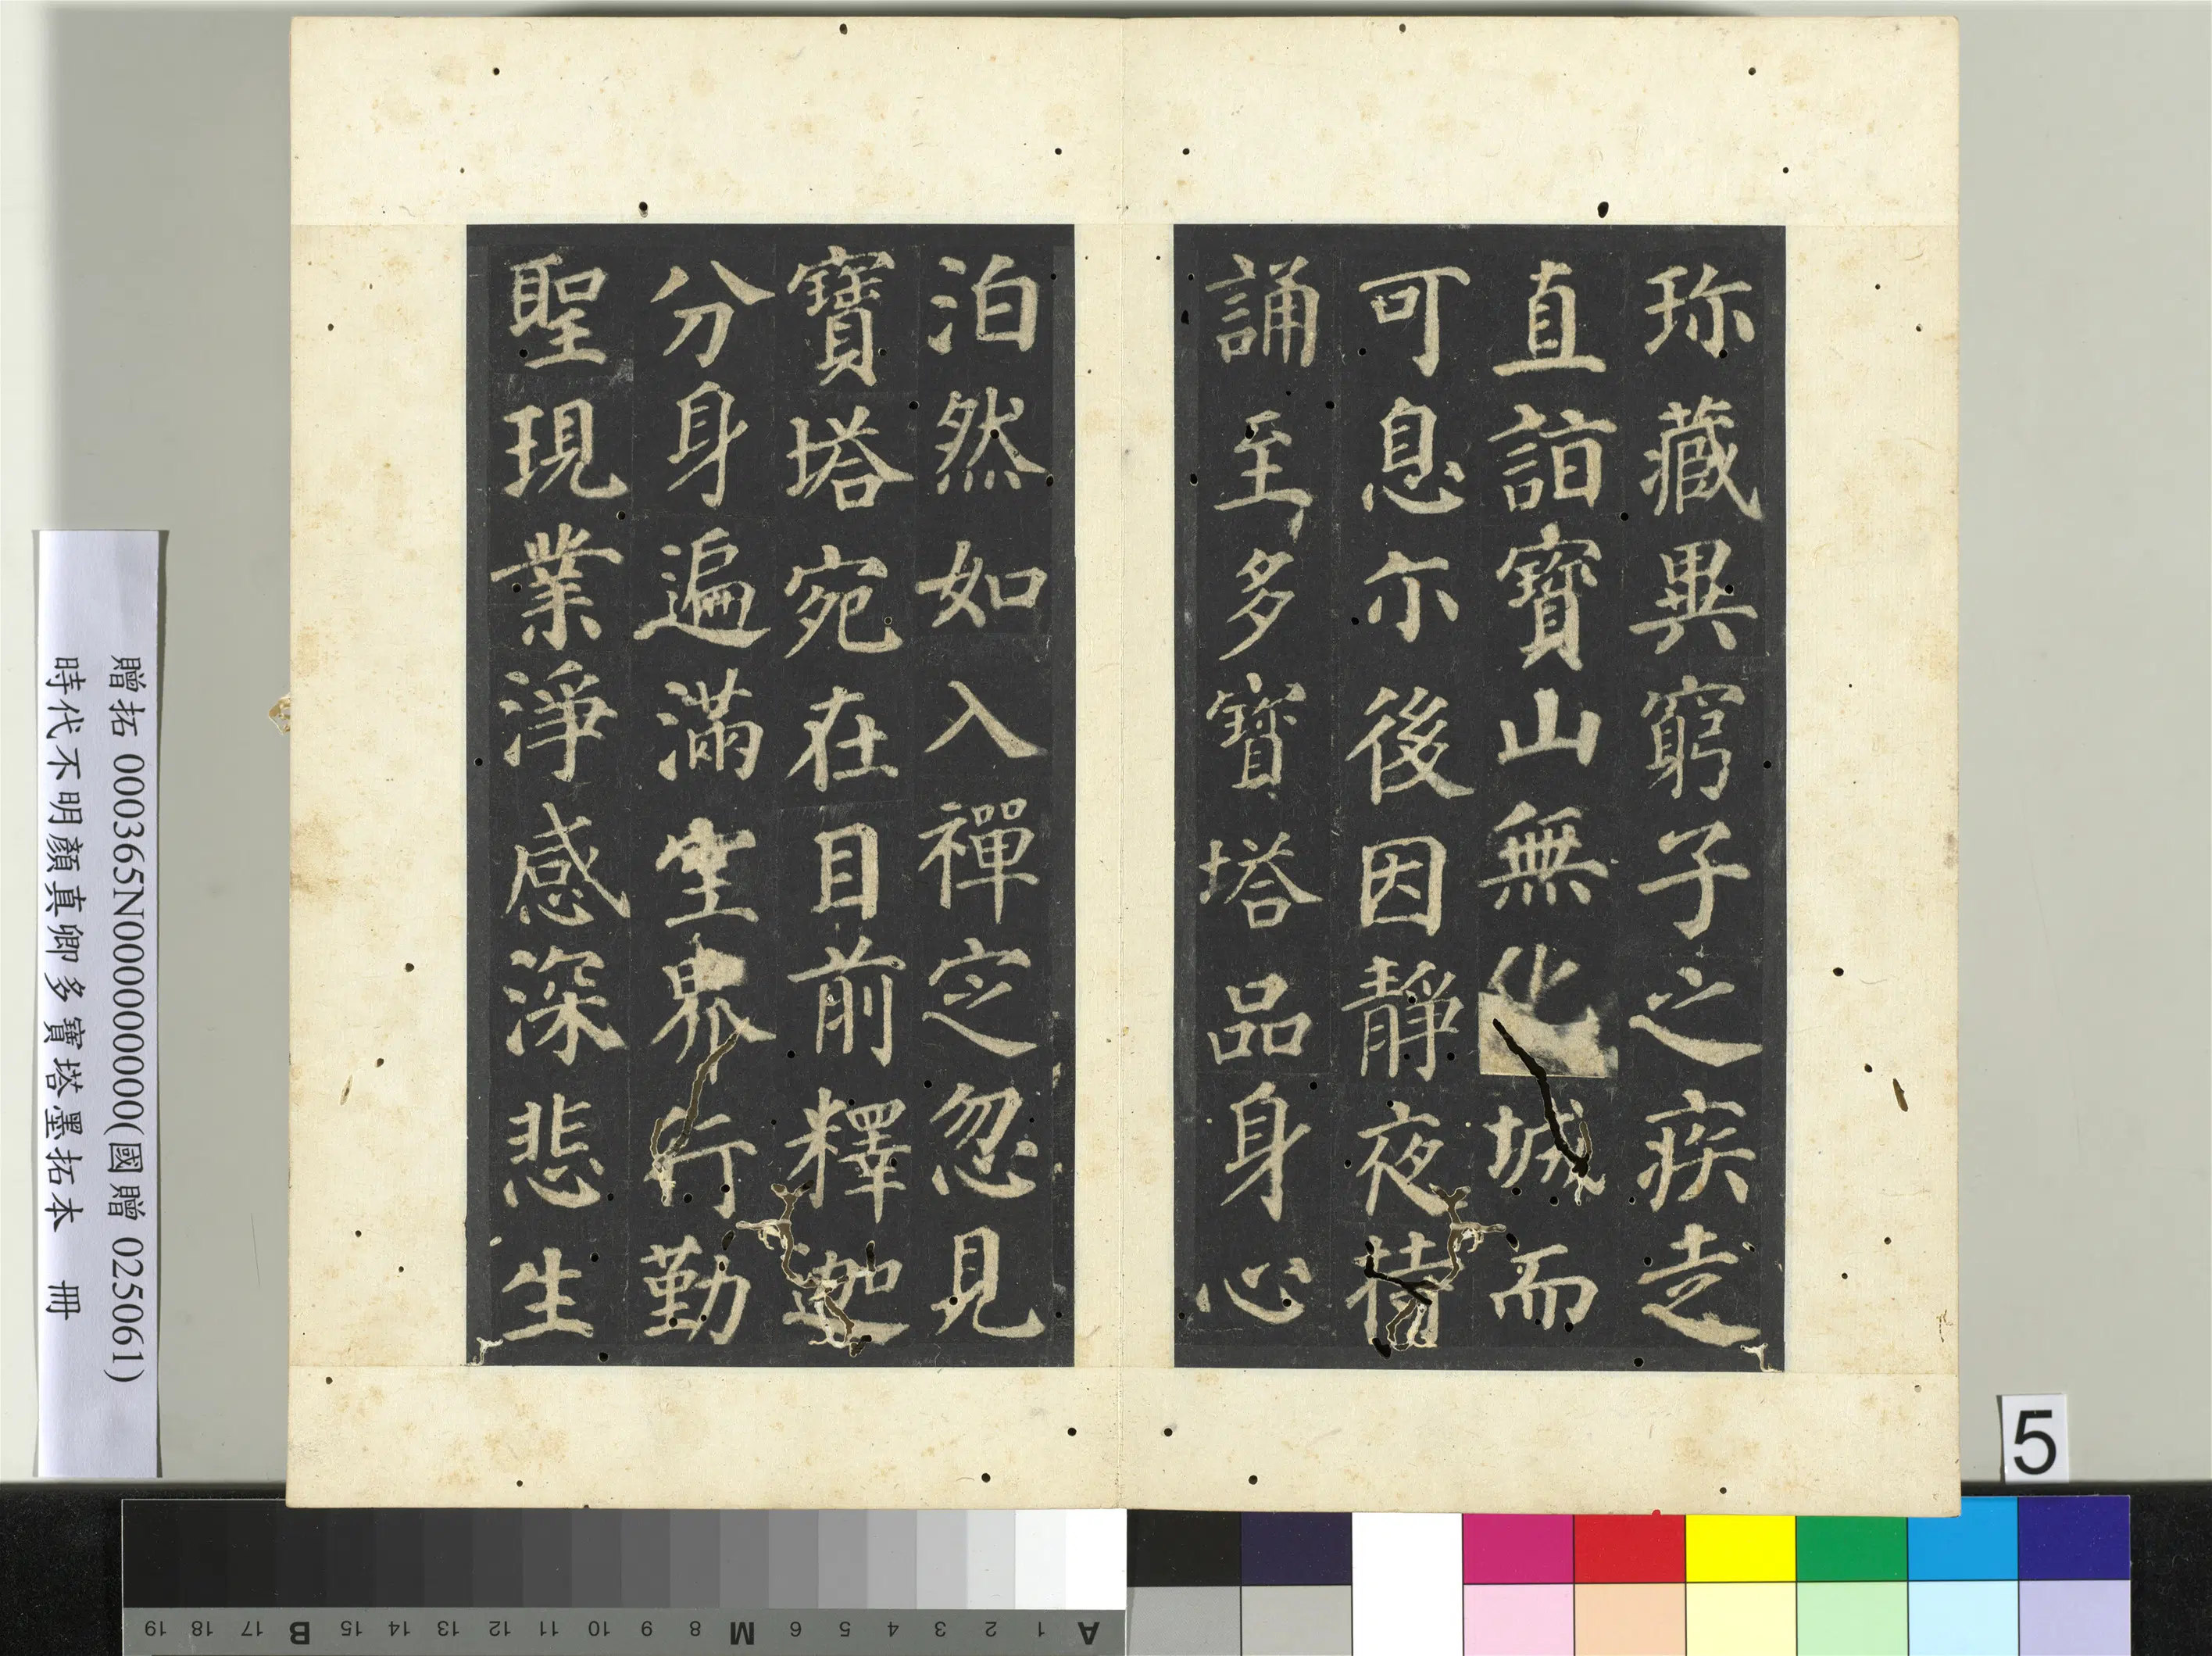 珎藏異窮子之疾走
直詣寶山無化城而
可息尓後因靜夜持
誦至多寶塔品身心
泊然如入禪定忽見
寶塔宛在目前釋迦
分身遍滿空界行勤
聖現業淨感深悲生
贈拓 000365N000000000(國贈 025061)
時代不明顏真卿多寶塔墨拓本 冊
5
A 1 2 3 4 5 6 M 8 9 10 11 12 13 14 15 B 17 18 19